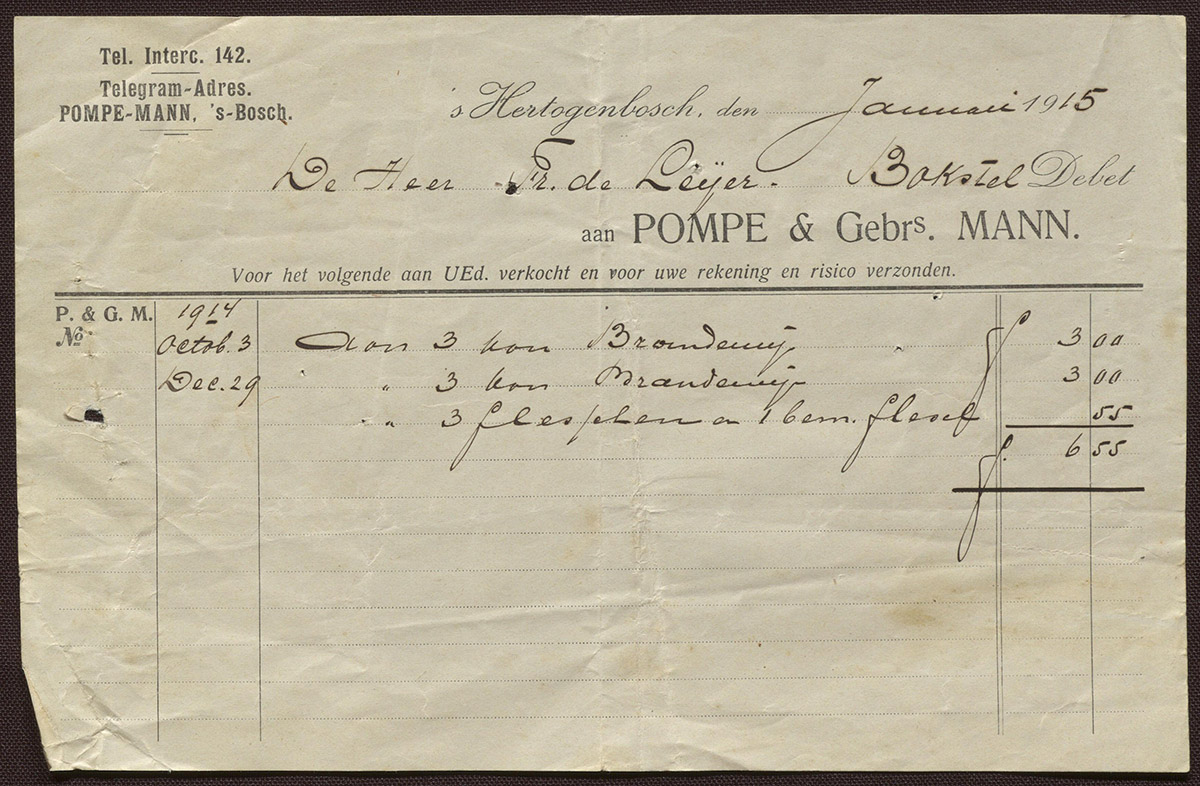 Tel. Interc. 142.
Telegram-Adres.
POMPE-MANN, 's-Bosch.
's Hertogenbosch, den Januari 1915
De Heer Fr. de Leijer. Bokstel Debet
aan POMPE & Gebrs. MANN.
Voor het volgende aan UEd. verkocht en voor uwe rekening en risico verzonden.
P. & G. M. 1914
No
Octob. 3 Aan 3 kan Brandewijn " f 3 00
Dec. 29 " " 3 kan Brandewijn 3 00
" " 3 flesschen a 1 bem. flesch 55
f. 6 55